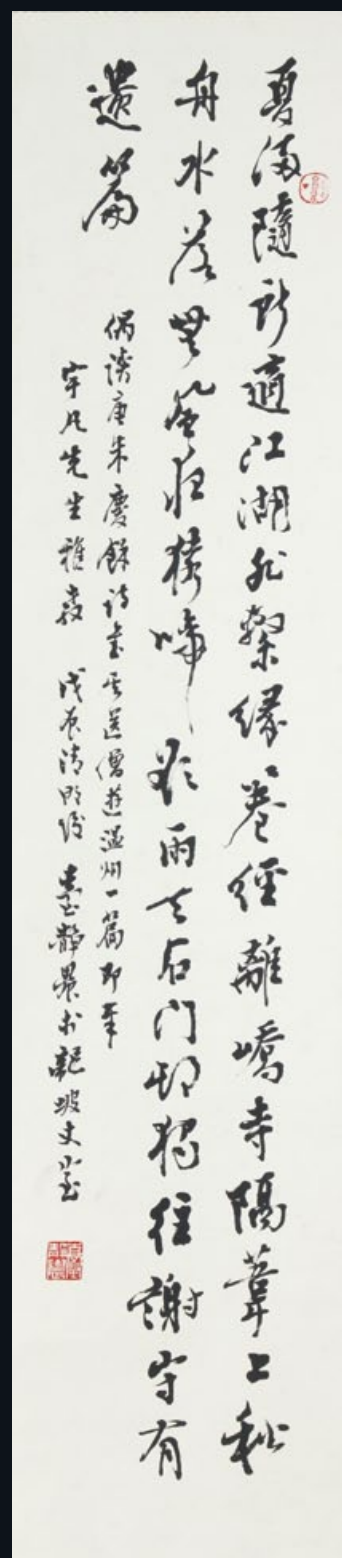 夏滿隨所適江湖非繫緣卷經離嶠寺隔葦上秋
舟水落無風夜猿啼欲雨天石門期獨往謝守有
遺篇
偶讀唐朱慶餘詩至其送僧遊溫州一篇即奉
宇凡先生雅教 戊辰清明後 臺靜農於龍坡丈室